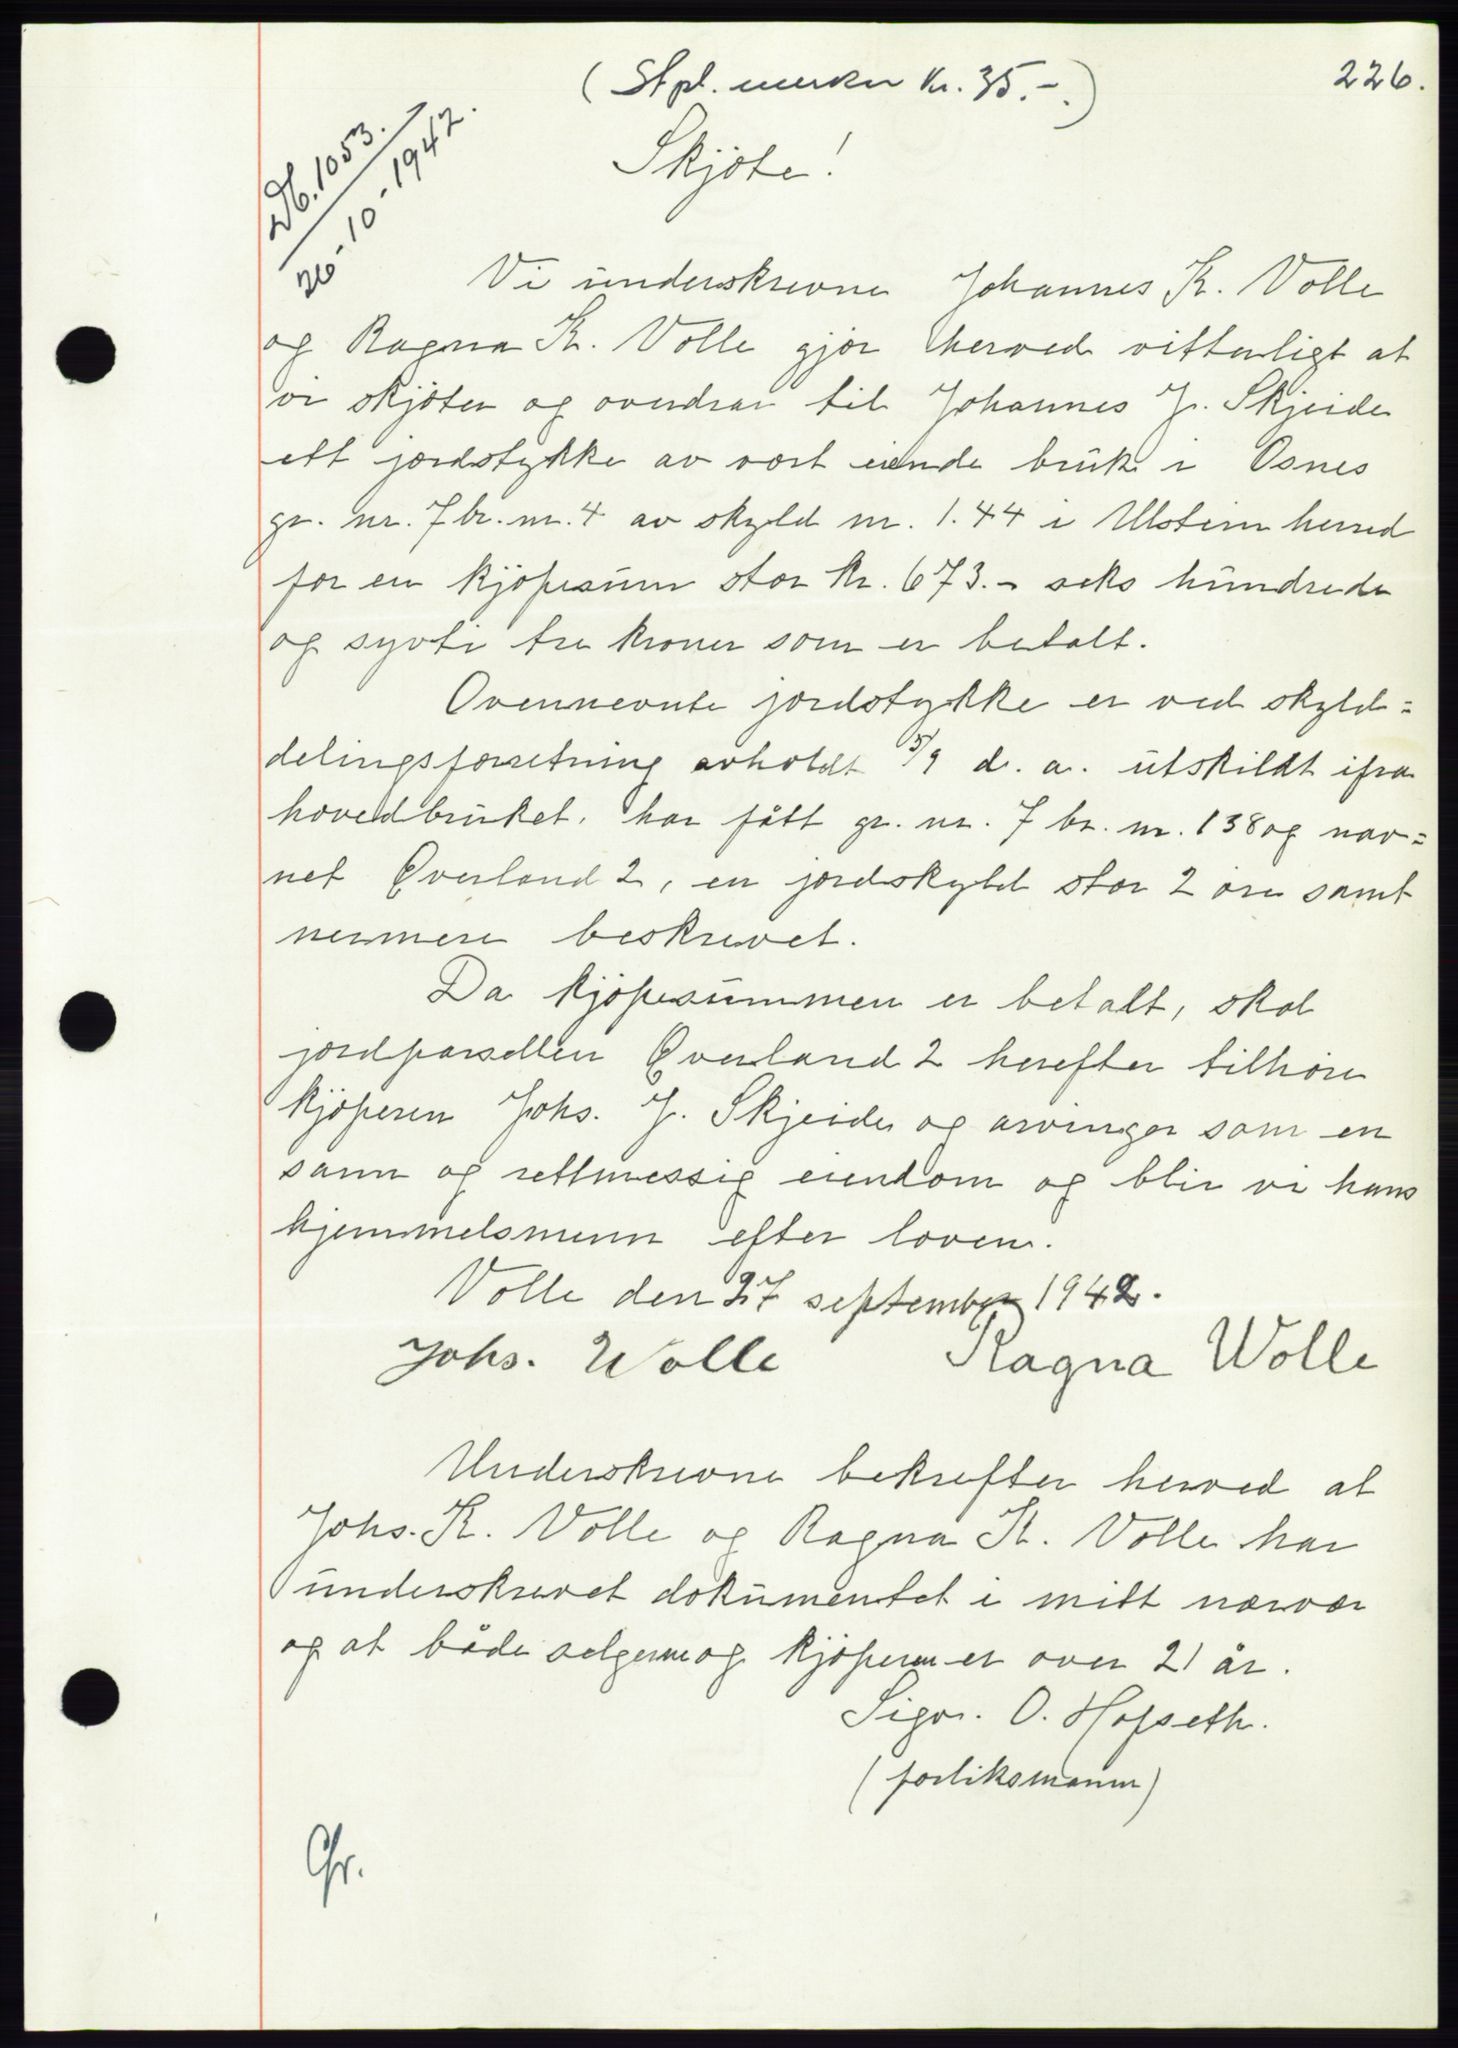 226.
(Stpl. merker Kr. 35.-.)
Db. 1053.
26-10-1942.
Skjöte!
Vi underskrevne Johannes K. Volle
og Ragna K. Volle gjör herved vitterligt at
vi skjöter og overdrar til Johannes J. Skjeide
ett jordstykke av vort eiende bruk i Osnes
gr. nr. 7 br. nr. 4 av skyld m. 1.44 i Ulstein herred
for en kjöpesum stor kr. 673.- seks hundrede
og sytti tre kroner som er betalt.
Ovennevnte jordstykke er ved skyld=
delingsforretning avholdt 5/9 d. a. utskildt ifra
hovedbruket, har fått gr. nr. 7 br. nr. 138 og nav=
net Øverland 2, en jordskyld stor 2 öre samt
nermere beskrevet.
Da kjöpesummen er betalt, skal
jordparsellen Øverland 2 herefter tilhöre
kjöperen Johs. J. Skjeide og arvinger som en
sann og rettmessig eiendom og blir vi hans
hjemmelsmenn efter loven.
Volle den 27 september 1942.
Johs. Wolle Ragna Wolle
Underskrevne bekrefter herved at
Johs. K. Volle og Ragna K. Volle har
underskrevet dokumentet i mitt nærvær
og at både selgerne og kjöperen er over 21 år.
Sigv. O. Hofseth.
(forliksmann)
Gr.